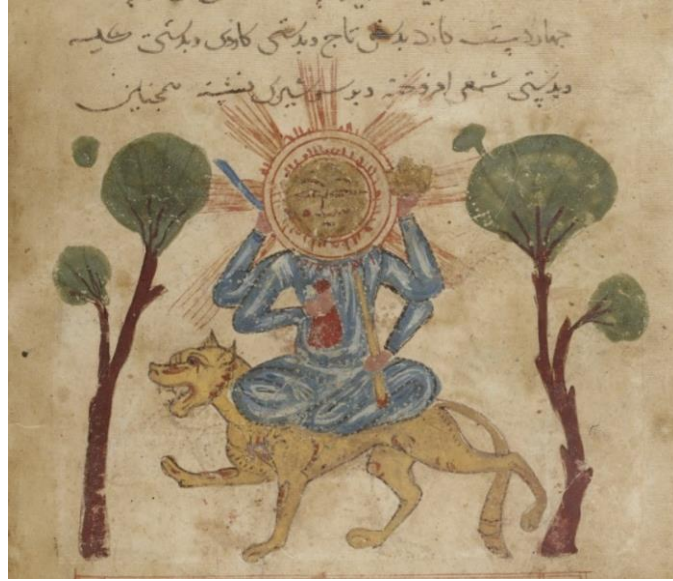 جهار دست دارد بدستی تاج وبدستی کاردی وبدستی
وبدستی شمعی افروخته وبر شیری نشسته همچنین